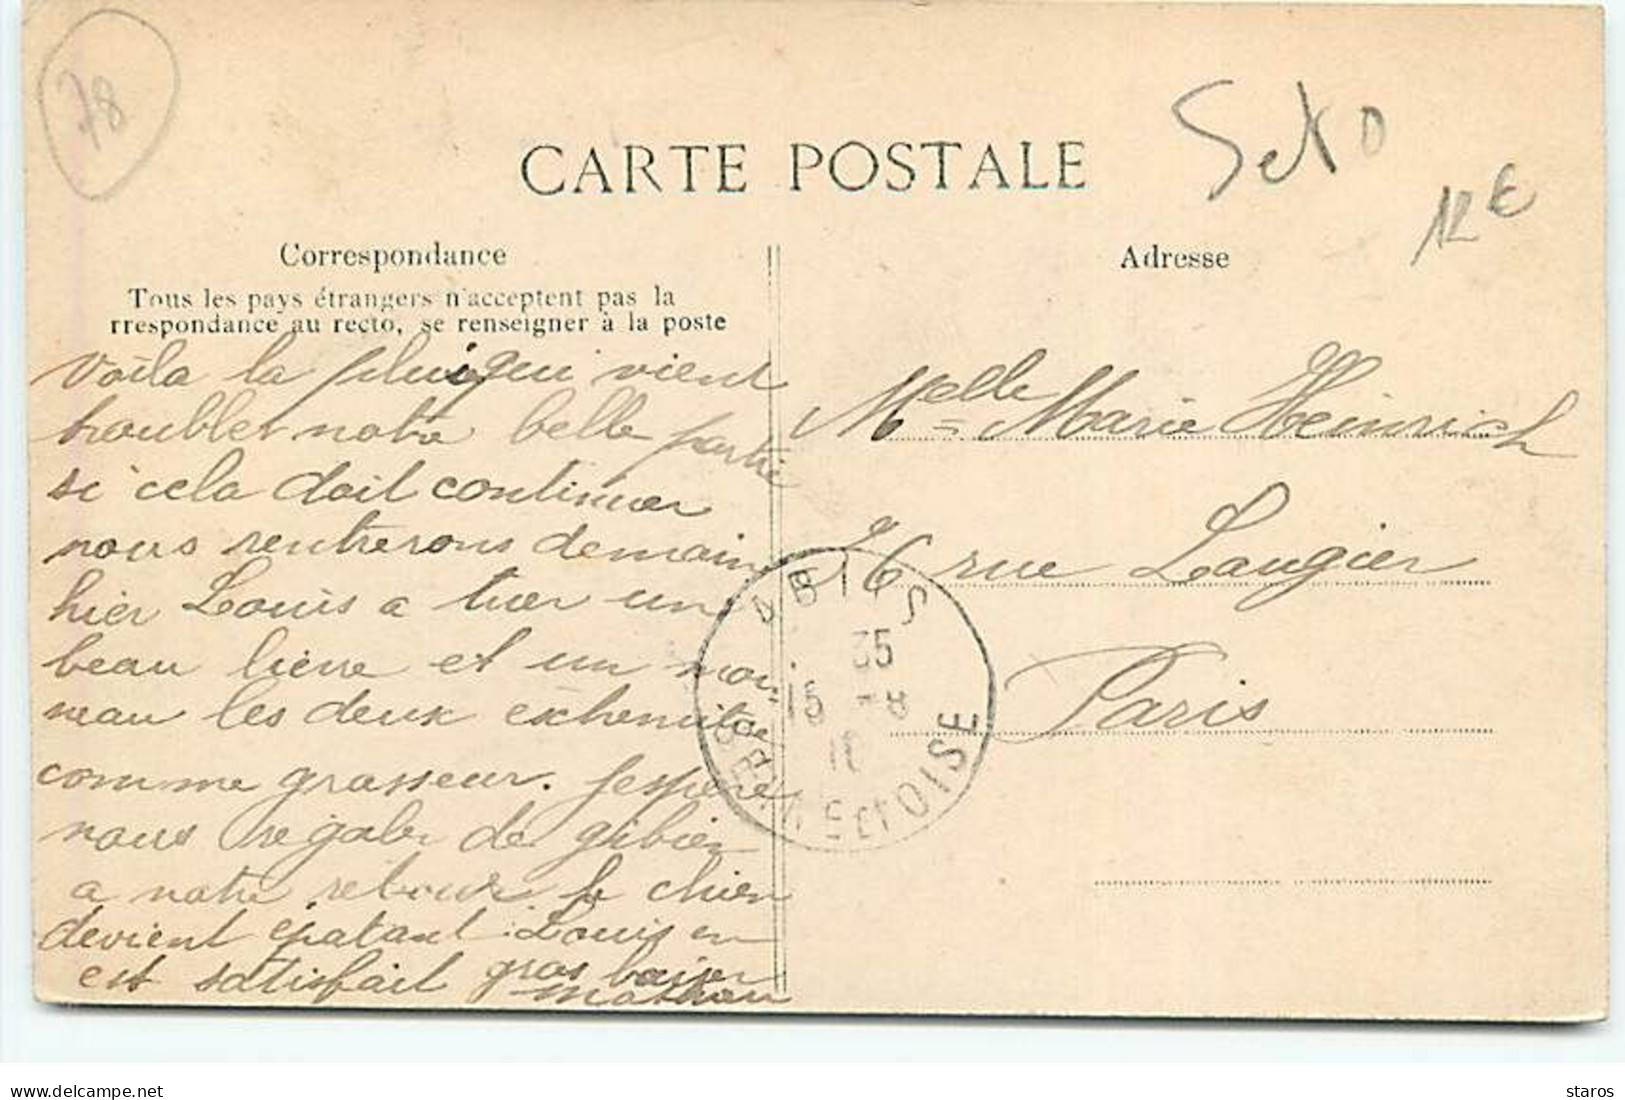 78
CARTE POSTALE
Seto
12 €
Correspondance
Tous les pays étrangers n'acceptent pas la
rrespondance au recto, se renseigner à la poste
Adresse
Voila la pluie qui vient
troubler notre belle partie
si cela doit continuer
nous rentrerons demain
hier Louis a tuer un
beau lièvre et un
les deux
comme grasseur. J'espère
nous régaler de gibier
a notre retour. le chien
devient épatant Louis en
est satisfait gros baiser
Melle Marie Heinrich
26 rue Laugier
Paris
ABLIS
35
15 - 8
11
SEINE & OISE
delcampe.net
staros